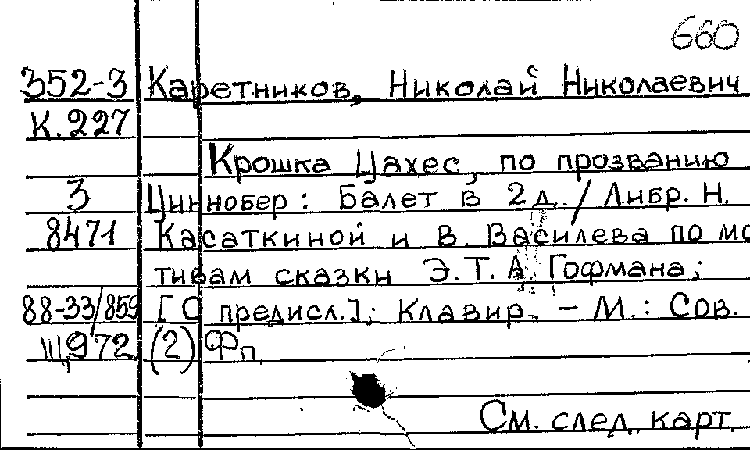 660
352-3 Каретников, Николай Николаевич
К.227
Крошка Цахес, по прозванию
3 Циннобер: Балет в 2 д. / Либр. Н.
8471 Касаткиной и В. Василева по мо
тивам сказки Э.Т.А. Гофмана;
88-33/859 [С предисл.]; Клавир. - М.: Сов.
Ш,972 (2) Фп.
См. след. карт.